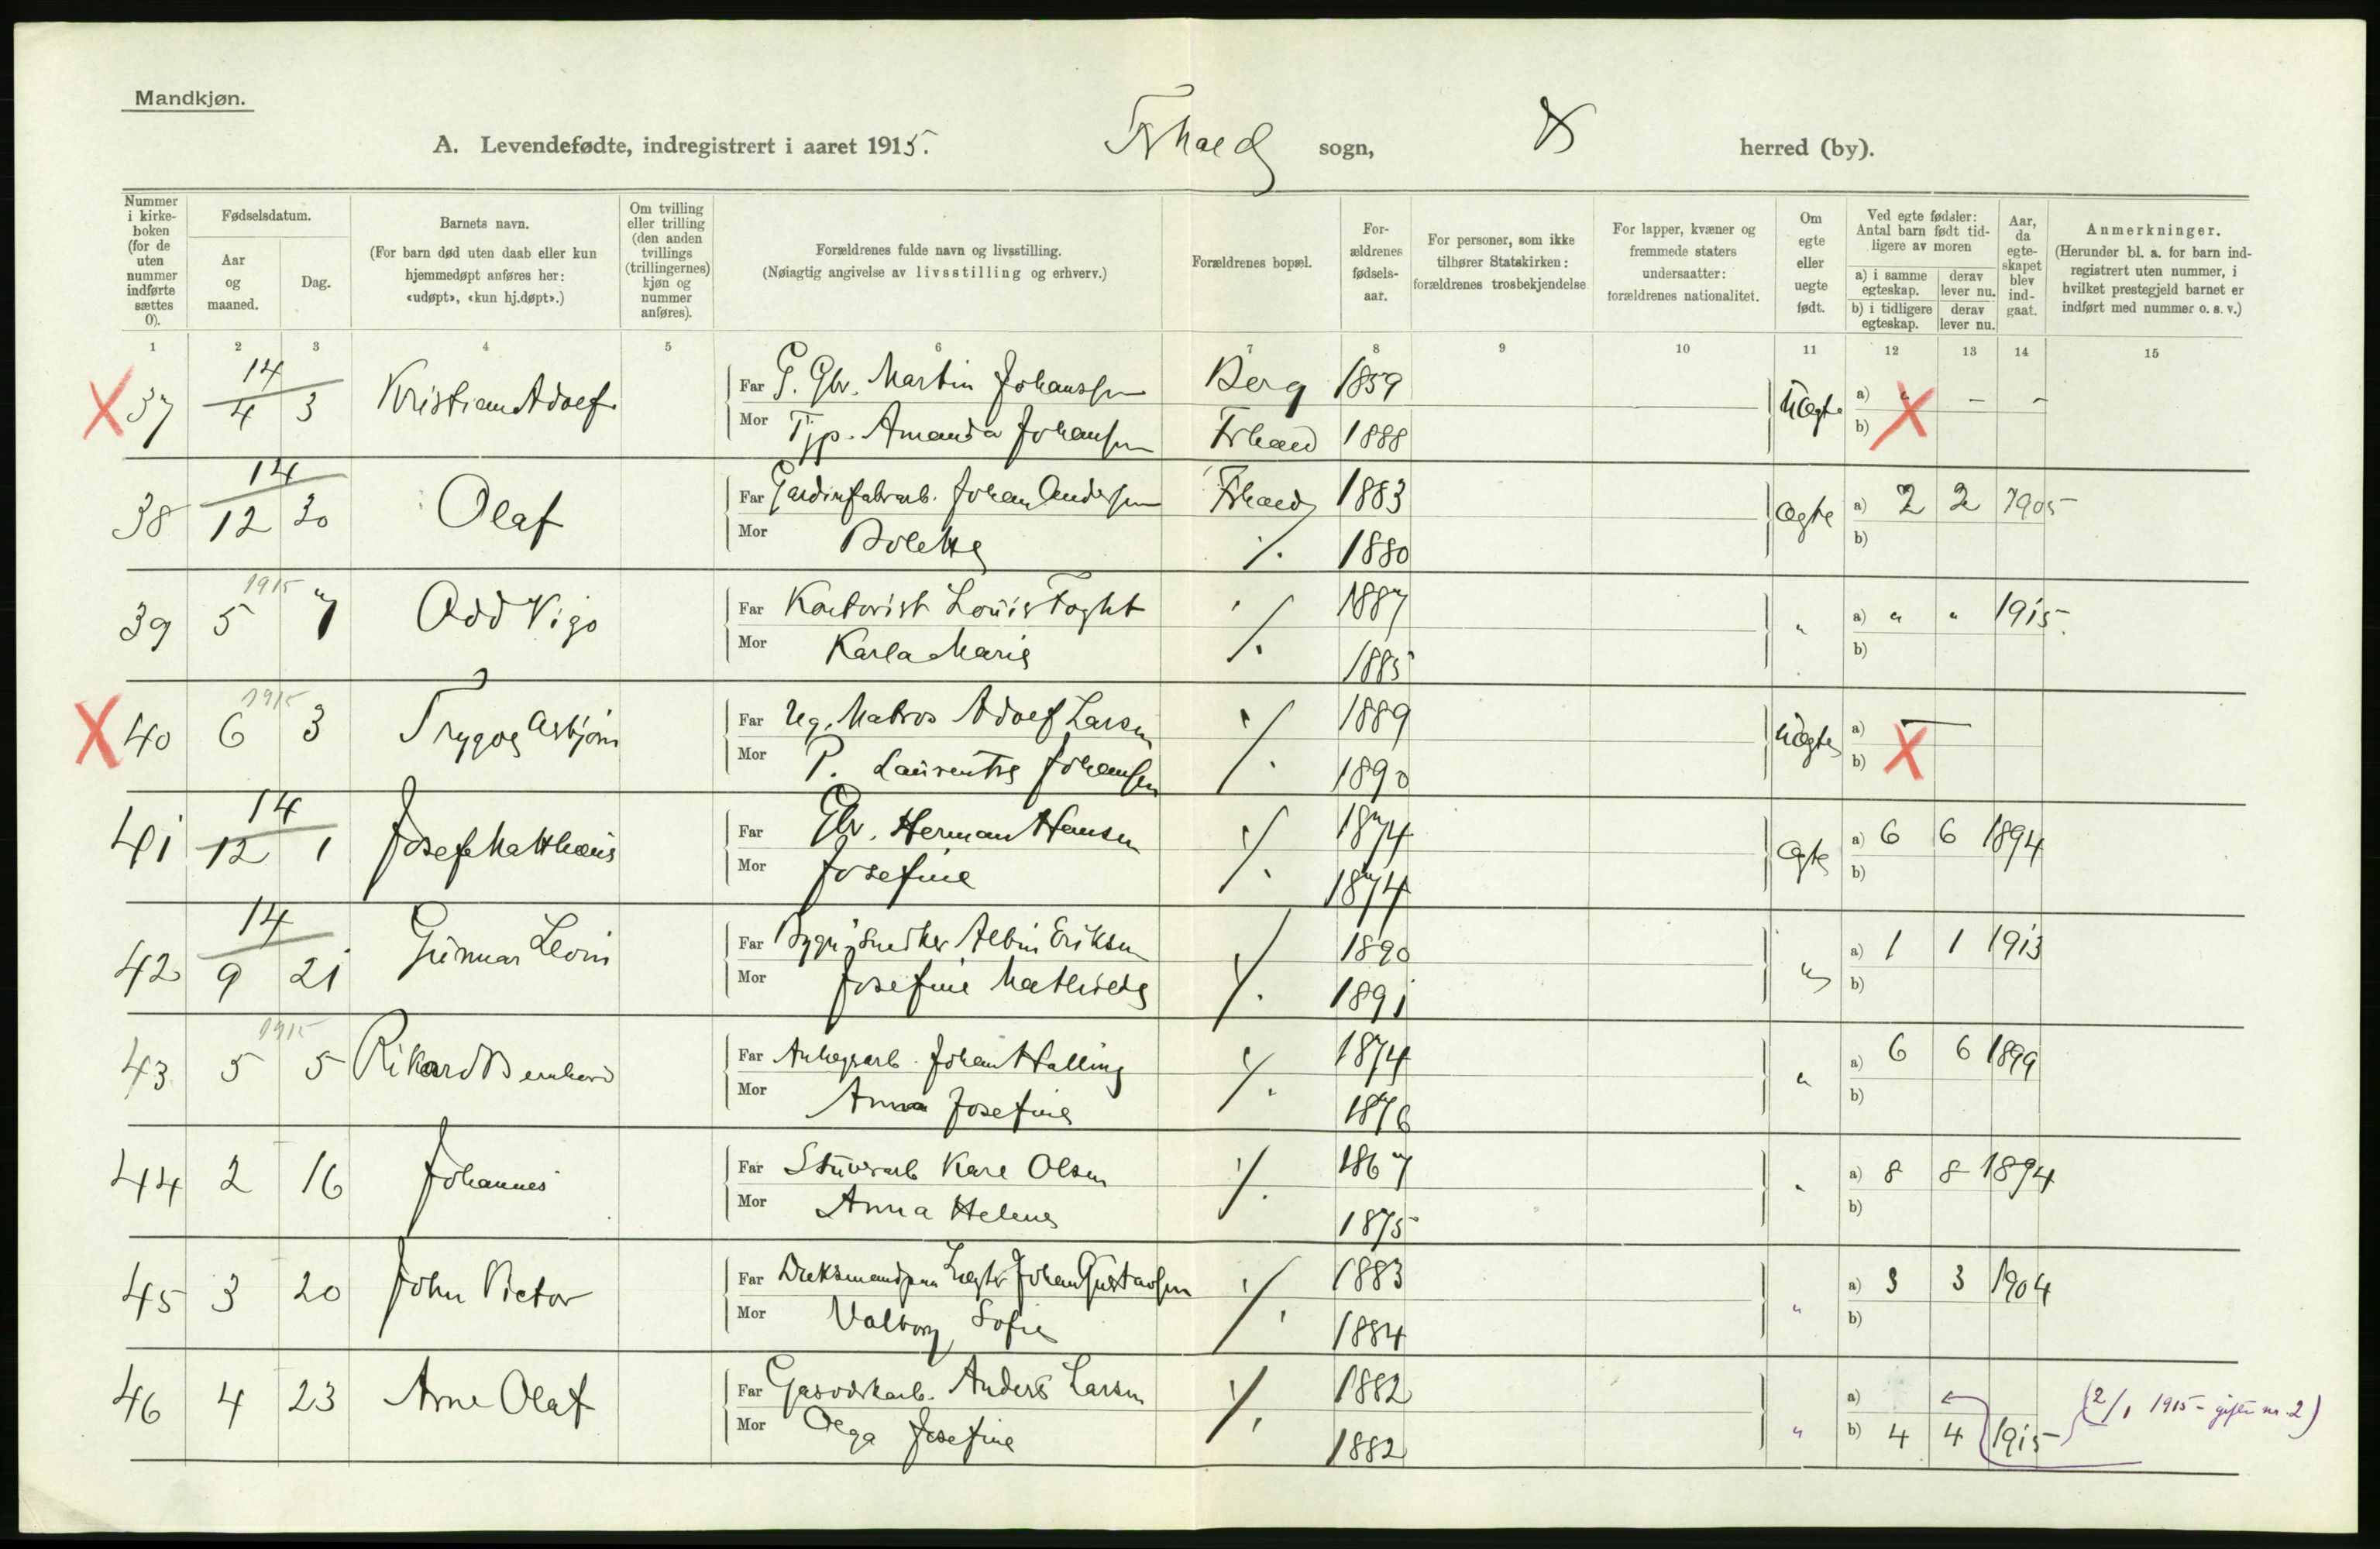 Mandkjøn.
A. Levendefødte, indregistrert i aaret 1915. Frhald sogn, herred (by).
Nummer i kirkeboken (for de uten nummer indførte sættes 0).
Fødselsdatum.
Aar og maaned.
Dag.
Barnets navn.
(For barn død uten daab eller kun hjemmedøpt anføres her: «udøpt», «kun hj.døpt».)
Om tvilling eller trilling (den anden tvillings (trillingernes) kjøn og nummer anføres).
Forældrenes fulde navn og livsstilling.
(Nøiagtig angivelse av livsstilling og erhverv.)
Forældrenes bopæl.
Forældrenes fødselsaar.
For personer, som ikke tilhører Statskirken: forældrenes trosbekjendelse
For lapper, kvæner og fremmede staters undersaatter: forældrenes nationalitet.
Om egte eller uegte født.
Ved egte fødsler: Antal barn født tidligere av moren
a) i samme egteskap. derav lever nu.
b) i tidligere egteskap. derav lever nu.
Aar, da egteskapet blev indgaat.
Anmerkninger.
(Herunder bl. a. for barn indregistrert uten nummer, i hvilket prestegjeld barnet er indført med nummer o. s. v.)
1 2 3 4 5 6 7 8 9 10 11 12 13 14 15
X 37 14/4 3 Kristian Adolf Far G. Gbr. Martin Johanssen Berg 1859 Uegte a) " - -
Mor Tjp. Amanda Johansen Frhald 1888 b) X
38 14/12 20 Olaf Far Gardinfabrarb. Johan Andersen Frhald 1883 Ægte a) 2 2 1905
Mor Bolette ·/. 1880 b)
39 1915 5 7 Odd Vigo Far Kontorist Louis Foght ·/. 1887 " a) " " 1915.
Mor Karla Marie 1885 b)
X 40 1915 6 3 Trygve Asbjørn Far Ug. Matros Adolf Larsen ·/. 1889 Uægte a) —
Mor P. Laurentse Johansen 1890 b) X
41 14/12 1 Josef Matthæus Far Gbr. Herman Hansen ·/. 1874 Ægte a) 6 6 1894
Mor Josefine 1874 b)
42 14/9 21 Gunnar Levin Far Bygn.snedker Albin Eriksen ·/. 1890 " a) 1 1 1913
Mor Josefine Mathilde 1891 b)
43 1915 5 5 Rikard Bernhard Far Anlegsarb. Johan Halling ·/. 1874 " a) 6 6 1899
Mor Anna Josefine 1876 b)
44 2 16 Johannes Far Stuverarb Karl Olsen ·/. 1867 " a) 8 8 1894
Mor Anna Helene 1875 b)
45 3 20 John Victor Far Johan Gustavsen ·/. 1883 " a) 3 3 1904
Mor Valborg Sofie 1884 b)
46 4 23 Arne Olaf Far Gasverkarb. Anders Larsen ·/. 1882 " a)
Mor Olga Josefine 1882 b) 4 4 1915 (2/1 1915 - gift nr. 2)